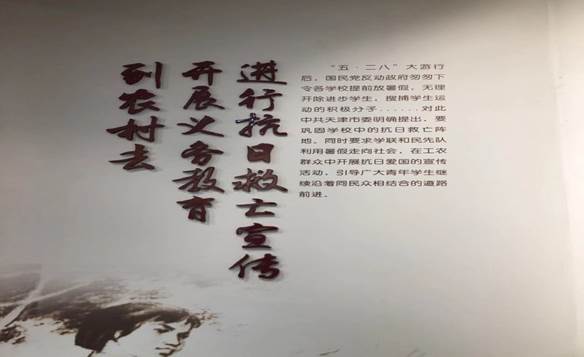 进行抗日救亡宣传
开展义务教育
到农村去
“五·二八”大游行
后，国民党反动政府匆匆下
令各学校提前放暑假，无理
开除进步学生，搜捕学生运
动的积极分子......对此
中共天津市委明确提出，要
巩固学校中的抗日救亡阵
地，同时要求学联和民先队
利用暑假走向社会，在工农
群众中开展抗日爱国的宣传
活动，引导广大青年学生继
续沿着同民众相结合的道路
前进。